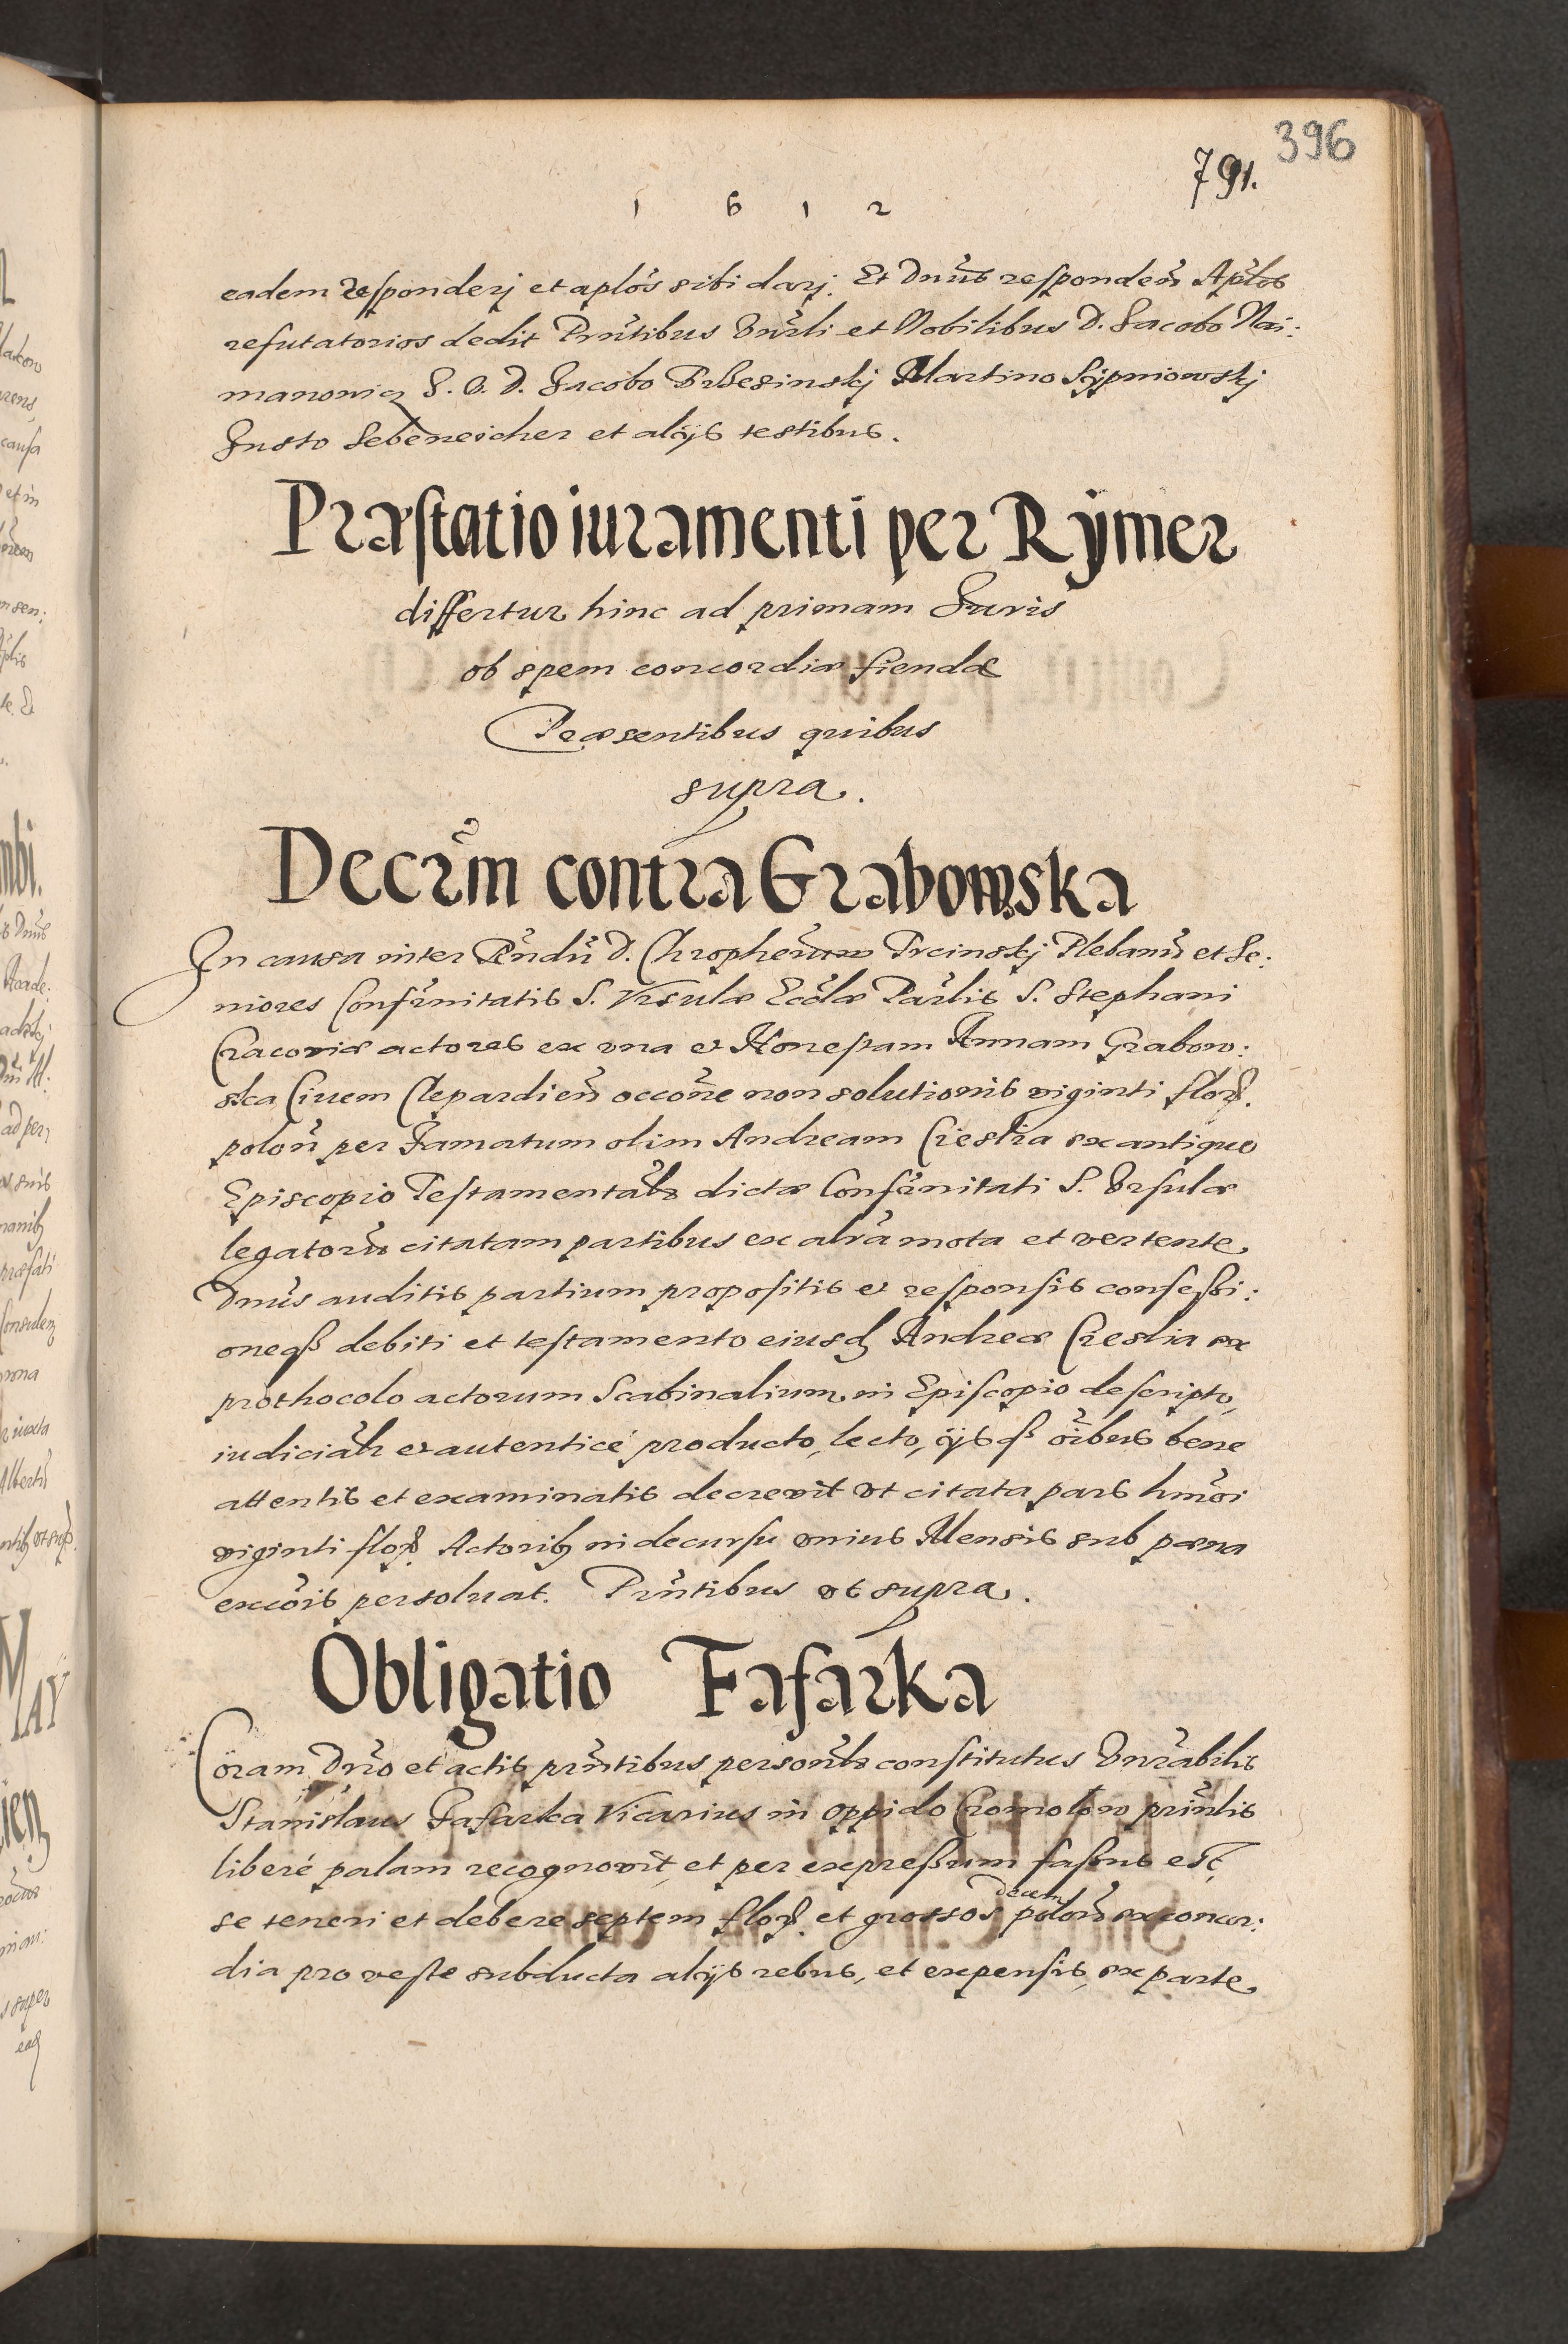 396
791.
1 6 1 2
eadem Respondery et aplos sibi dary. Et Dnus respondeñ Aplos
refutatorios dedit Pñtibus Vnrli et Nobilibus D. Jacobo Nai:
manowicz J. V. D. Jacobo Przesinskj Martino Sÿpniowskj
Justo Lebeneicher et alÿs testibus.
Præstatio iuramenti per Rÿmer
differtur hinc ad primam Juris
ob spem concordiæ fiendæ
Præsentibus quibus
supra.
Decrm contra Grabowska
In causa inter Rñdũ D. Chropherum Trcinskj Plebanũ et Se:
niores Confrnitatis S. Vrsulæ Ecclæ Parlis S. Stephani
Cracoviæ actores ex vna et Honestam Annam Grabow:
ska Civem Clepardieñ occõne non solutionis viginti flor.
poloñ per Famatum olim Andream Crestia ex antiquo
Episcopio Testamentalr dictæ Confrnitati S. Vrsulæ
legatorũ citatam partibus ex alrã mota et vertente.
Dnus auditis partium propositis et responsis confessi:
oneqз debiti et testamento eiusd Andreæ Creslia ex
prothocolo actorum Scabinalium in Episcopio descripto,
iudicialr et autenticè producto, lecto, ÿsqз oĩbus bene
attentis et examinatis decrevit vt citata pars hmõi
viginti flor. Actorib in decursu vnius Mensis sub pæna
excõis persoluat. Pñtibus vt supra.
Obligatio Fafarka
Coram Dño et actis pñtibus personlr constitutus Vnrabilis
Stanislaus Fafarka Vicarius in oppido Cromolow prinlis
liberè palam recognovit, et per expreßum faßus est,
se teneri et debere septem flor. et grossos decem polon ex concor:
dia pro veste subducta alÿs rebus, et expensis, ex parte